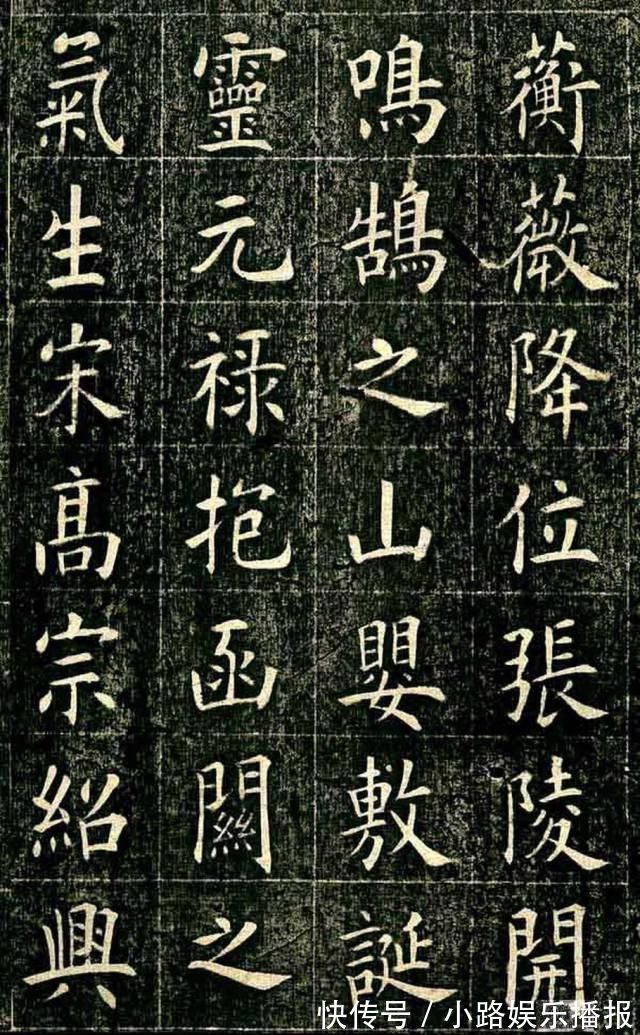 蘅薇降位張陵開
鳴鵠之山嬰敷誕
靈元禄抱函關之
氣生宋高宗紹興
快传号/小路娱乐播报